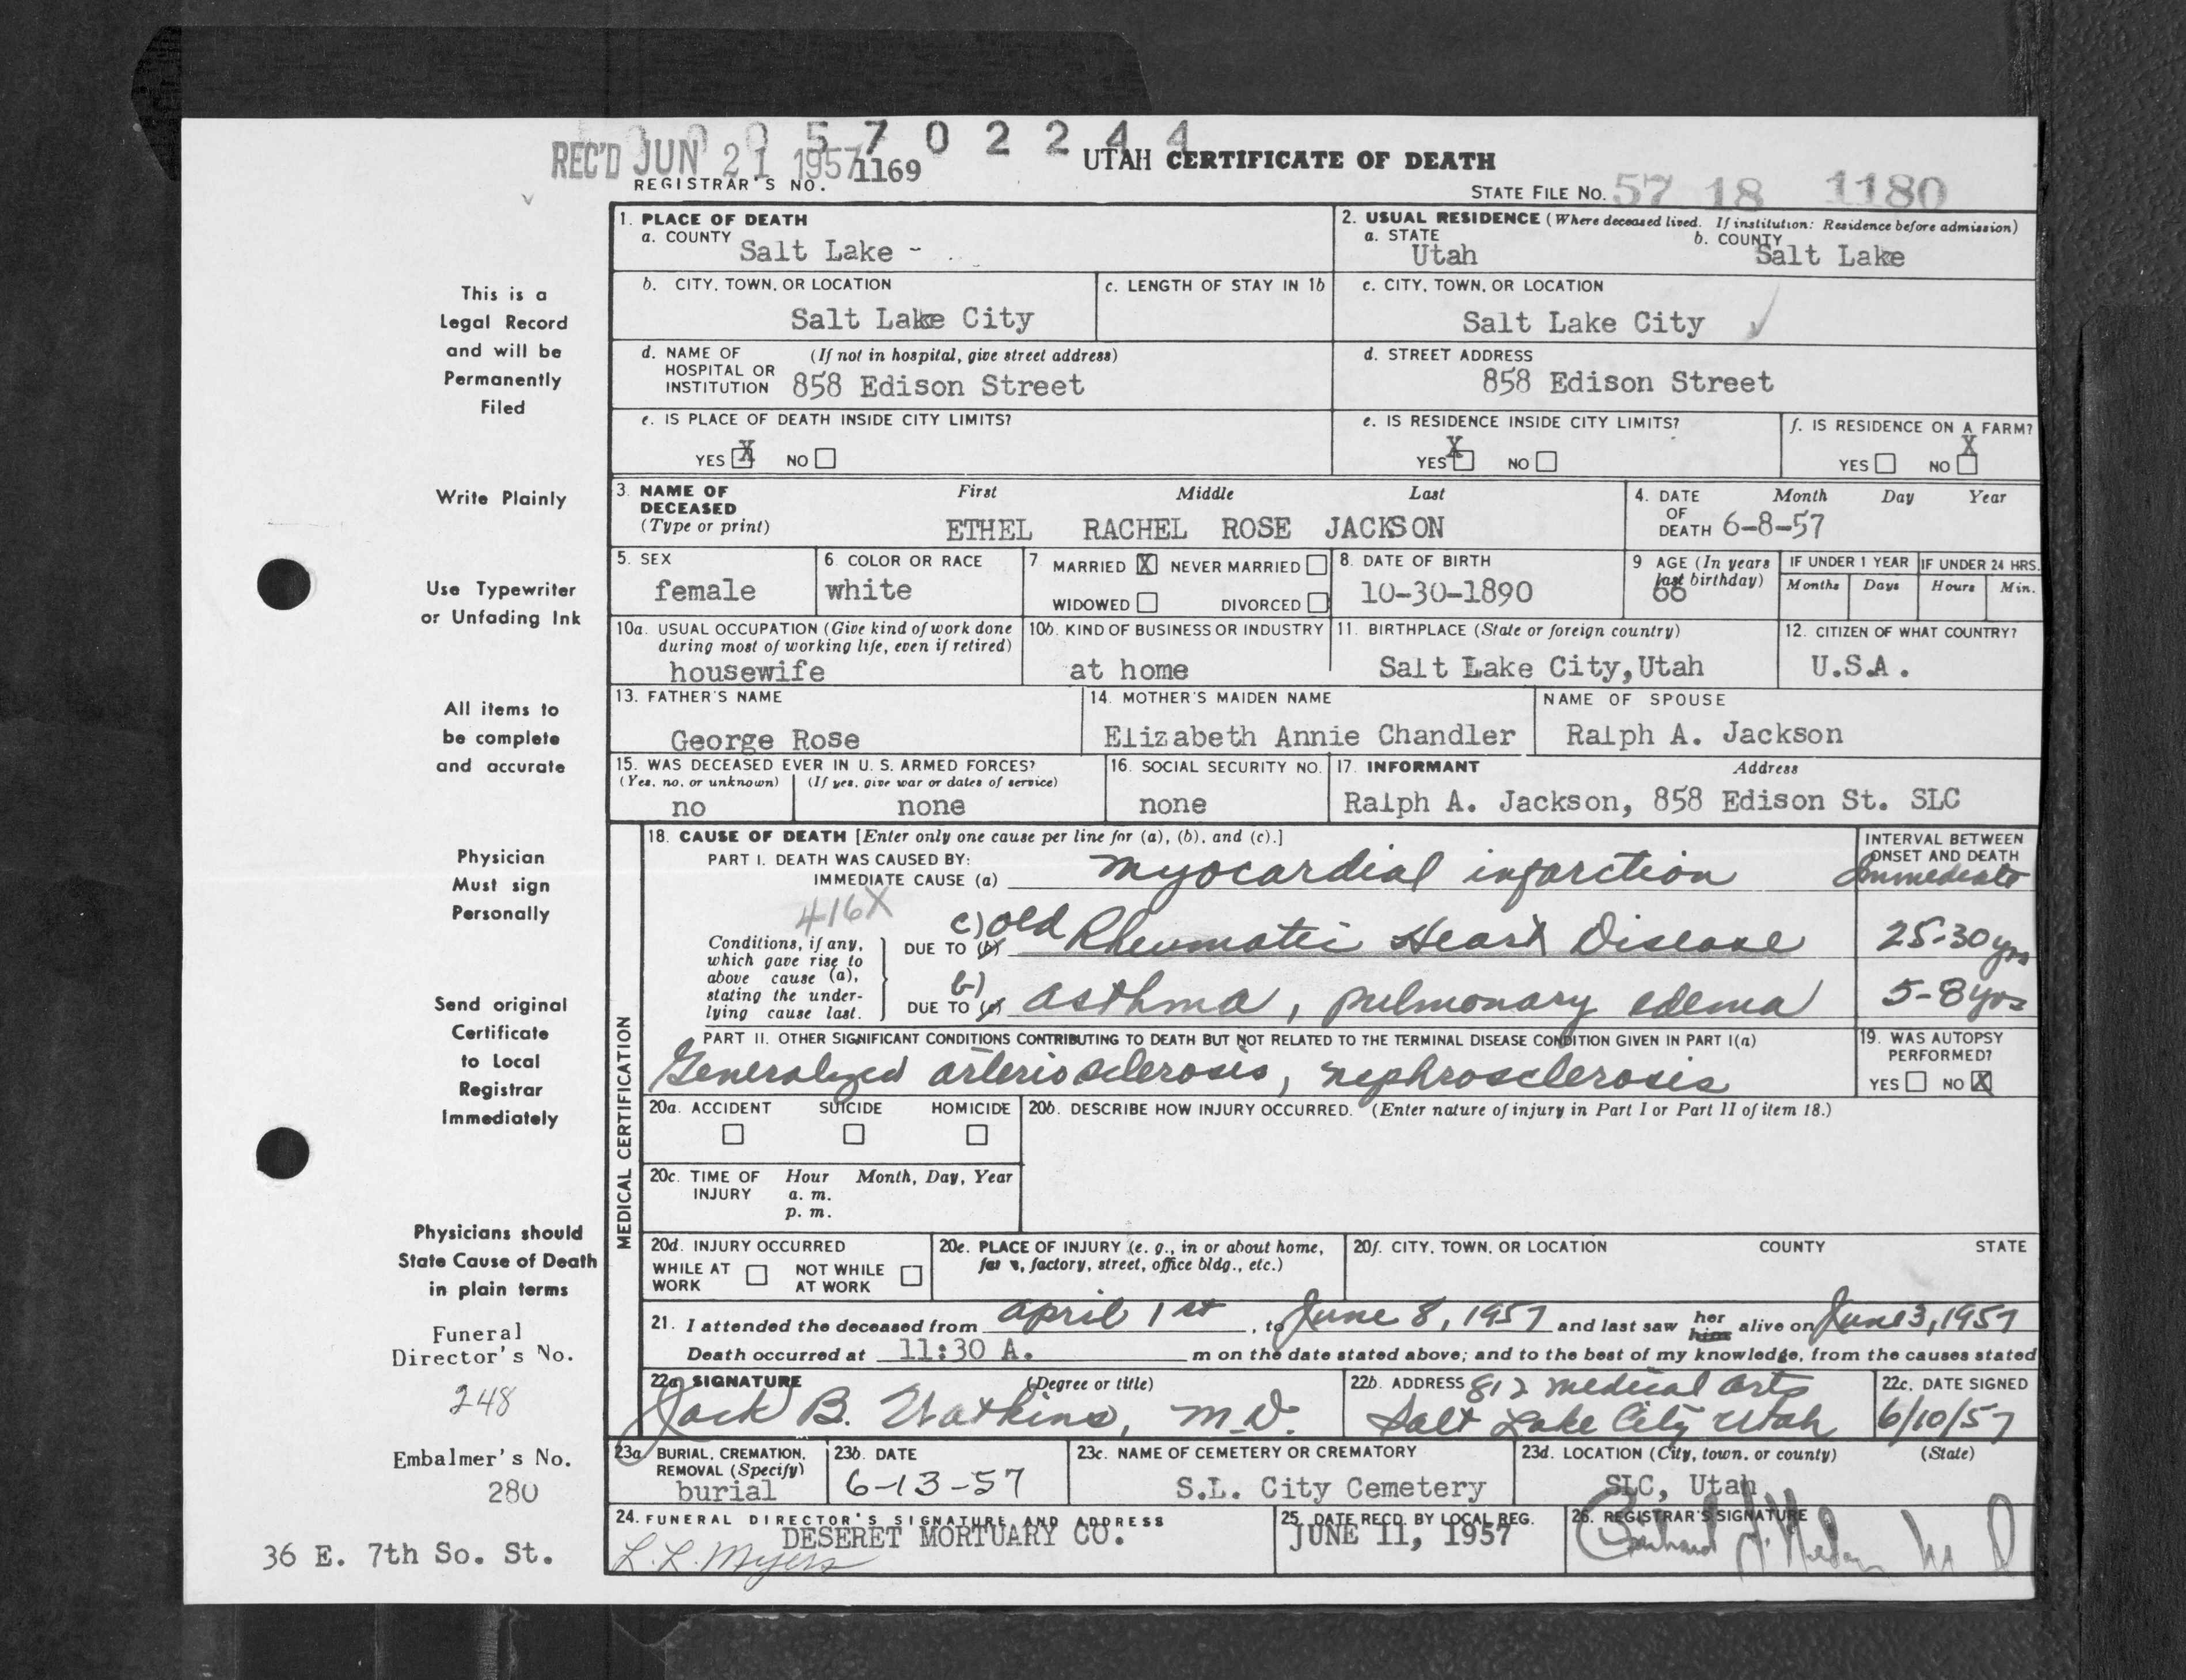 0 0 5 7 0 2 2 4 4
REC'D JUN 21 1957
REGISTRAR'S NO. 1169
UTAH CERTIFICATE OF DEATH
STATE FILE NO. 57 18 1180
This is a
Legal Record
and will be
Permanently
Filed
Write Plainly
Use Typewriter
or Unfading Ink
All items to
be complete
and accurate
Physician
Must sign
Personally
Send original
Certificate
to Local
Registrar
Immediately
Physicians should
State Cause of Death
in plain terms
Funeral
Director's No.
248
Embalmer's No.
280
36 E. 7th So. St.
1. PLACE OF DEATH
a. COUNTY Salt Lake -
2. USUAL RESIDENCE (Where deceased lived. If institution: Residence before admission)
a. STATE Utah b. COUNTY Salt Lake
b. CITY, TOWN, OR LOCATION
Salt Lake City
c. LENGTH OF STAY IN 1b
c. CITY, TOWN, OR LOCATION
Salt Lake City
d. NAME OF HOSPITAL OR INSTITUTION (If not in hospital, give street address)
858 Edison Street
d. STREET ADDRESS
858 Edison Street
e. IS PLACE OF DEATH INSIDE CITY LIMITS?
YES X NO
e. IS RESIDENCE INSIDE CITY LIMITS?
YES X NO
f. IS RESIDENCE ON A FARM?
YES NO X
3. NAME OF DECEASED (Type or print) First Middle Last
ETHEL RACHEL ROSE JACKSON
4. DATE OF DEATH Month Day Year
6-8-57
5. SEX
female
6. COLOR OR RACE
white
7. MARRIED X NEVER MARRIED
WIDOWED DIVORCED
8. DATE OF BIRTH
10-30-1890
9 AGE (In years last birthday)
66
IF UNDER 1 YEAR
Months Days
IF UNDER 24 HRS.
Hours Min.
10a. USUAL OCCUPATION (Give kind of work done during most of working life, even if retired)
housewife
10b. KIND OF BUSINESS OR INDUSTRY
at home
11. BIRTHPLACE (State or foreign country)
Salt Lake City, Utah
12. CITIZEN OF WHAT COUNTRY?
U.S.A.
13. FATHER'S NAME
George Rose
14. MOTHER'S MAIDEN NAME
Elizabeth Annie Chandler
NAME OF SPOUSE
Ralph A. Jackson
15. WAS DECEASED EVER IN U. S. ARMED FORCES?
(Yes, no, or unknown) (If yes, give war or dates of service)
no none
16. SOCIAL SECURITY NO.
none
17. INFORMANT Address
Ralph A. Jackson, 858 Edison St. SLC
MEDICAL CERTIFICATION
18. CAUSE OF DEATH [Enter only one cause per line for (a), (b), and (c).]
INTERVAL BETWEEN ONSET AND DEATH
PART I. DEATH WAS CAUSED BY:
IMMEDIATE CAUSE (a) myocardial infarction Immediate
416X
Conditions, if any, which gave rise to above cause (a), stating the underlying cause last.
DUE TO (b) c) old Rheumatic Heart Disease 25-30 yrs
DUE TO (c) b) asthma, pulmonary edema 5-8 yrs
PART II. OTHER SIGNIFICANT CONDITIONS CONTRIBUTING TO DEATH BUT NOT RELATED TO THE TERMINAL DISEASE CONDITION GIVEN IN PART I(a)
Generalized arteriosclerosis, nephrosclerosis
19. WAS AUTOPSY PERFORMED?
YES NO X
20a. ACCIDENT SUICIDE HOMICIDE
20b. DESCRIBE HOW INJURY OCCURRED. (Enter nature of injury in Part I or Part II of item 18.)
20c. TIME OF INJURY Hour Month, Day, Year
a. m.
p. m.
20d. INJURY OCCURRED
WHILE AT WORK NOT WHILE AT WORK
20e. PLACE OF INJURY (e. g., in or about home, farm, factory, street, office bldg., etc.)
20f. CITY, TOWN, OR LOCATION COUNTY STATE
21. I attended the deceased from April 1st, to June 8, 1957 and last saw her him alive on June 3, 1957
Death occurred at 11:30 A. m on the date stated above; and to the best of my knowledge, from the causes stated
22a. SIGNATURE (Degree or title)
Jack B. Watkins, M.D.
22b. ADDRESS 812 Medical Arts
Salt Lake City Utah
22c. DATE SIGNED
6/10/57
23a. BURIAL, CREMATION, REMOVAL (Specify)
burial
23b. DATE
6-13-57
23c. NAME OF CEMETERY OR CREMATORY
S.L. City Cemetery
23d. LOCATION (City, town, or county) (State)
SLC, Utah
24. FUNERAL DIRECTOR'S SIGNATURE AND ADDRESS
DESERET MORTUARY CO.
L. L. Myers
25. DATE RECD. BY LOCAL REG.
JUNE 11, 1957
26. REGISTRAR'S SIGNATURE